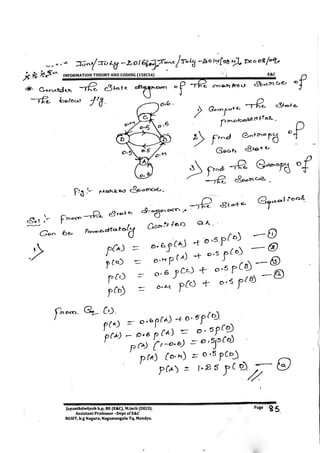 June/July-2016, June/July-2014, Dec08/09
INFORMATION THEORY AND CODING (15EC54) E&C
* Consider The State diagram of The markov Source of
The below fig.
1) Compute The State
probabilities.
2) Find Entropy of
Each State.
3) Find The Entropy of
The Source.
0.6
C
0.4 0.5 0.6
B D
0.5 A 0.4
0.6
Fig :- Markov Source.
Sol :- From The State diagram, The State Equations
Can be Immediately Written as.
1) p(A) = 0.6 p(A) + 0.5 p(D) — ①
p(B) = 0.4 p(A) + 0.5 p(B) — ②
p(C) = 0.6 p(C) + 0.5 p(B) — ③
p(D) = 0.4 p(C) + 0.5 p(D) — ④
From Eq (1).
p(A) = 0.6 p(A) + 0.5 p(D)
p(A) - 0.6 p(A) = 0.5 p(D)
p(A) (1-0.6) = 0.5 p(D)
p(A) (0.4) = 0.5 p(D)
p(A) = 1.25 p(D) —
Jayanthdwijesh h.p, BE (E&C), M.tech (DECS).
Assistant Professor –Dept of E&C
BGSIT, b.g Nagara, Nagamangala Tq, Mandya.
Page 85